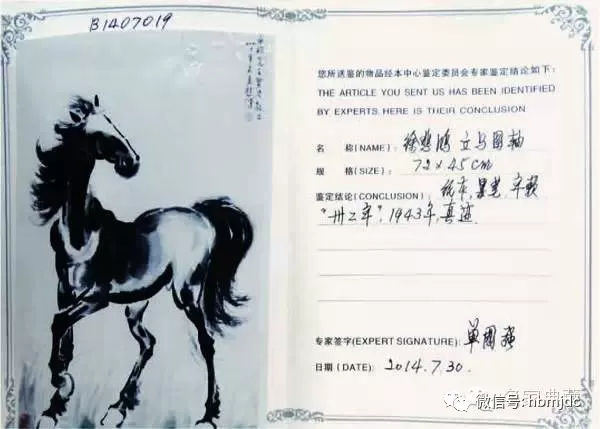 B1407019
您所送鉴的物品经本中心鉴定委员会专家鉴定结论如下:
THE ARTICLE YOU SENT US HAS BEEN IDENTIFIED
BY EXPERTS. HERE IS THEIR CONCLUSION
名 称(NAME): 徐悲鸿 立马图轴
规 格(SIZE): 72×45cm
鉴定结论(CONCLUSION): 纸本, 墨笔, 年款
"卅二年", 1943年, 真迹
专家签字(EXPERT SIGNATURE): 单国强
日期(DATE): 2014.7.30.
微信号: nbmjdc